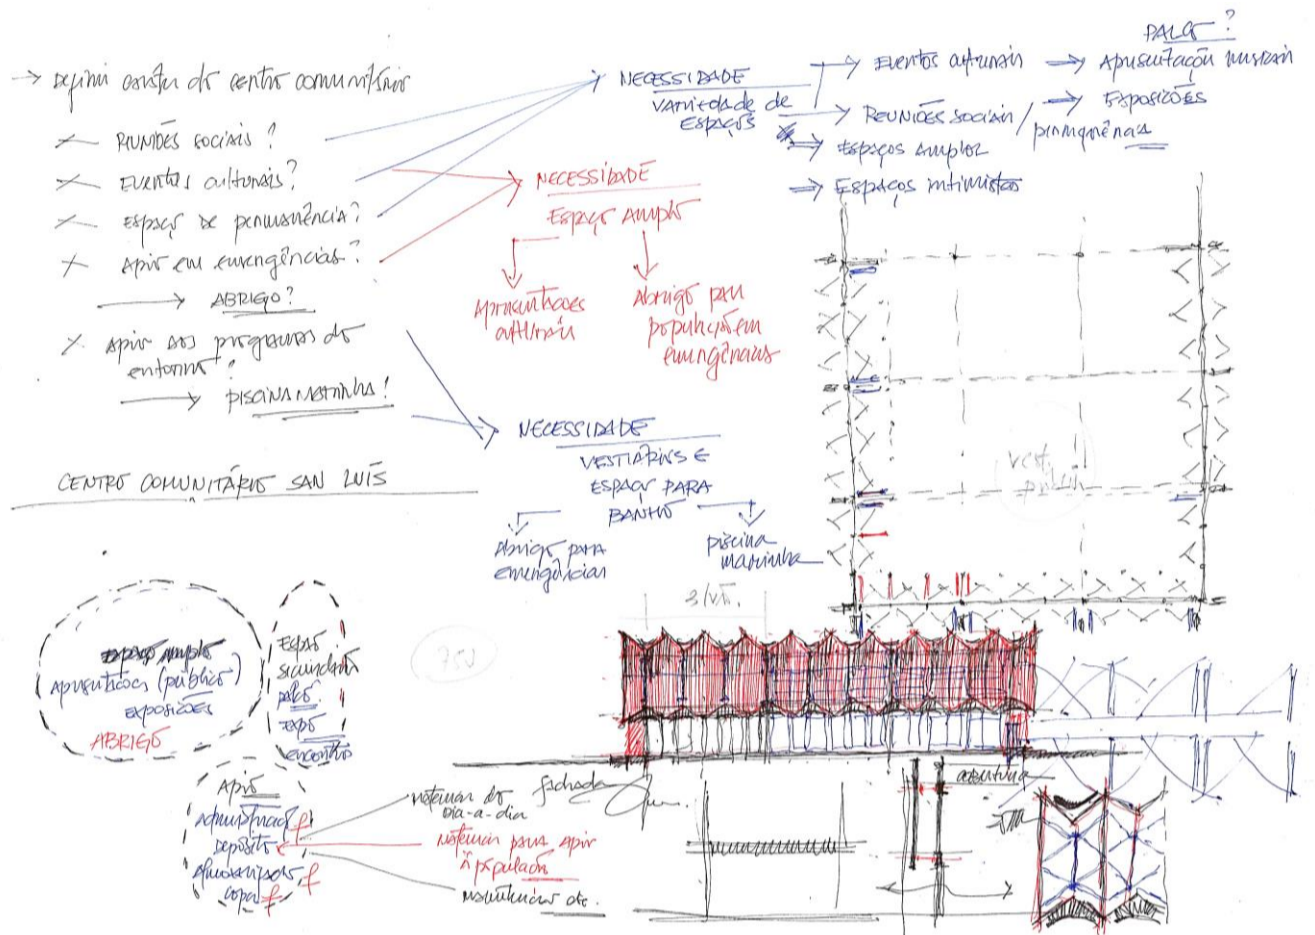 → Definir caráter do centro comunitário
REUNIÕES SOCIAIS?
EVENTOS culturais?
ESPAÇO DE permanência?
Apoio em emergências?
→ ABRIGO?
Apoio aos programas do
entorno?
→ PISCINA MARINHA!
CENTRO COMUNITÁRIO SAN LUÍS
NECESSIDADE
VARIEDADE DE
ESPAÇOS
→ EVENTOS culturais
→ REUNIÕES SOCIAIS /
permanências
→ Espaços amplos
→ Espaços intimistas
PALCO?
→ Apresentação musicais
→ EXPOSIÇÕES
NECESSIDADE
Espaço Amplo
Apresentações
culturais
Abrigo para
população em
emergências
NECESSIDADE
VESTIÁRIOS E
ESPAÇO PARA
BANHO
Abrigo para
emergências
piscina
marinha
vest.
espaço amplo
Apresentações (público)
EXPOSIÇÕES
ABRIGO
Espaço
secundário
palco
expo
encontro
Apoio
Administração
Depósito
Almoxarifado
copa
750
3/vt.
fachada
abertura
materiais do
DIA-A-DIA
materiais para apoio
à população
manutenção etc.